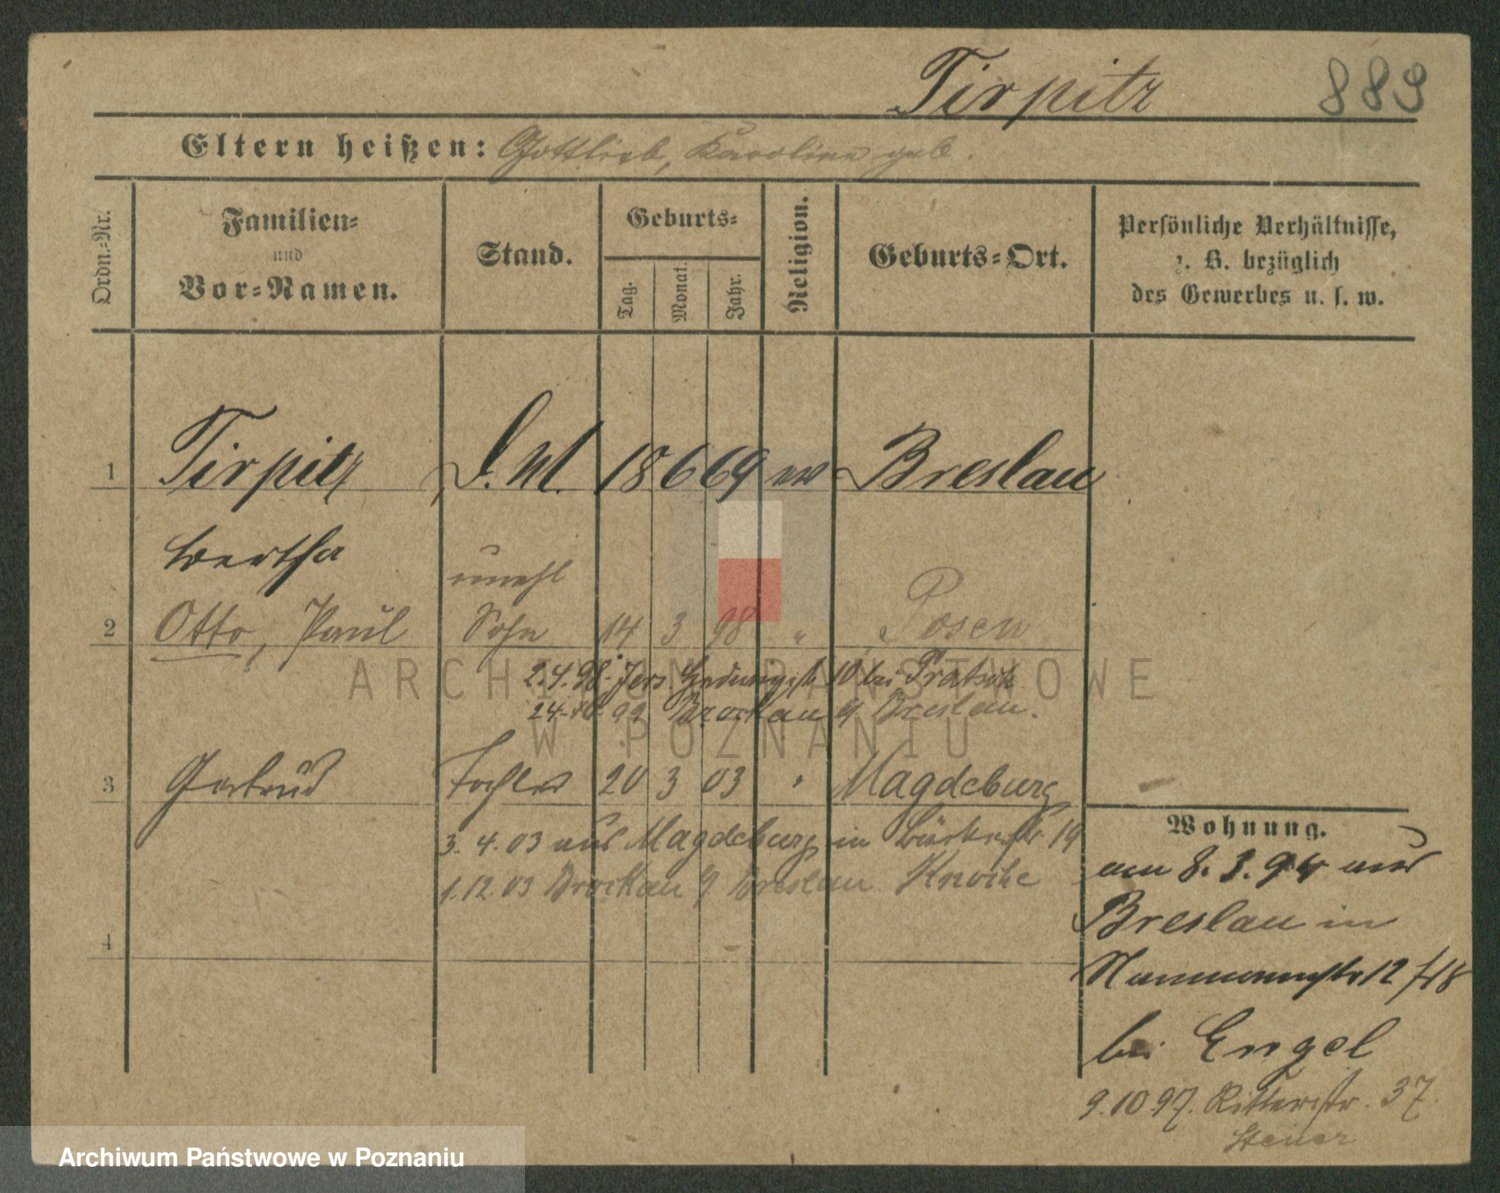 Tirpitz 889
Eltern heißen: Gottlieb, Karoline geb.
Ordn.-Nr.
Familien-
und
Vor-Namen.
Stand.
Geburts-
Tag.
Monat.
Jahr.
Religion.
Geburts-Ort.
Persönliche Verhältnisse,
z. B. bezüglich
des Gewerbes u. s. w.
1 Tirpitz 18 6 69 ev Breslau
Bertha
unehl
2 Otto, Paul Sohn 14 3 98 " Posen
2.4.98. 10 bei
24.10.99 Brockau / Breslau.
3 Gertrud Tochter 20 3 03 " Magdeburg
3.4.03 aus Magdeburg in 19
1.12.03 Brockau / Breslau
4
Wohnung.
am 8.3.94 aus
Breslau in
12
bei Engel
9.10.97. Ritterstr. 37.
ARCHIWUM PAŃSTWOWE
W POZNANIU
Archiwum Państwowe w Poznaniu